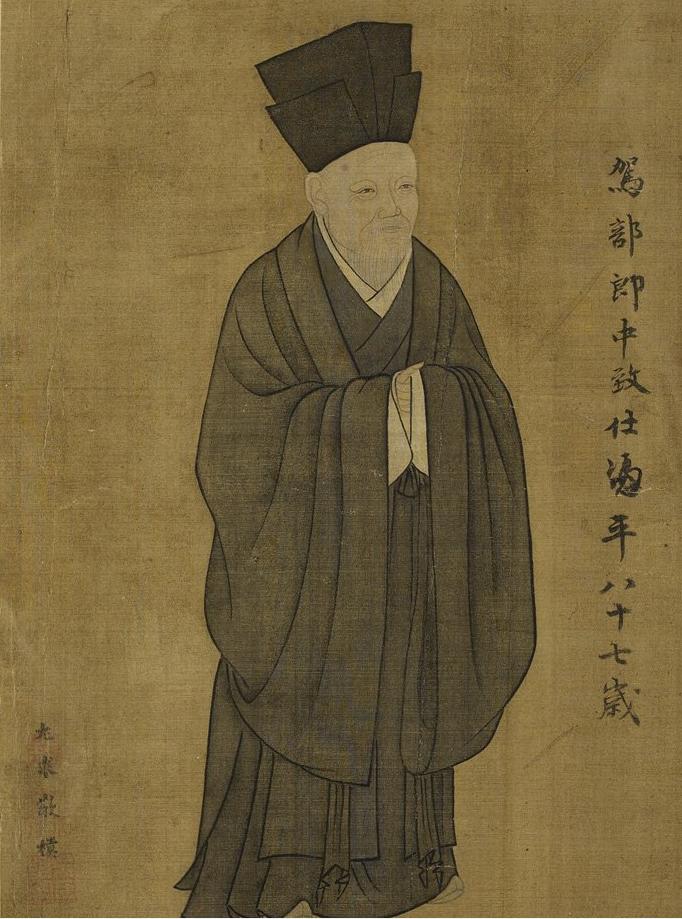 駕部郎中致仕馮平八十七歲
尤求敬橅